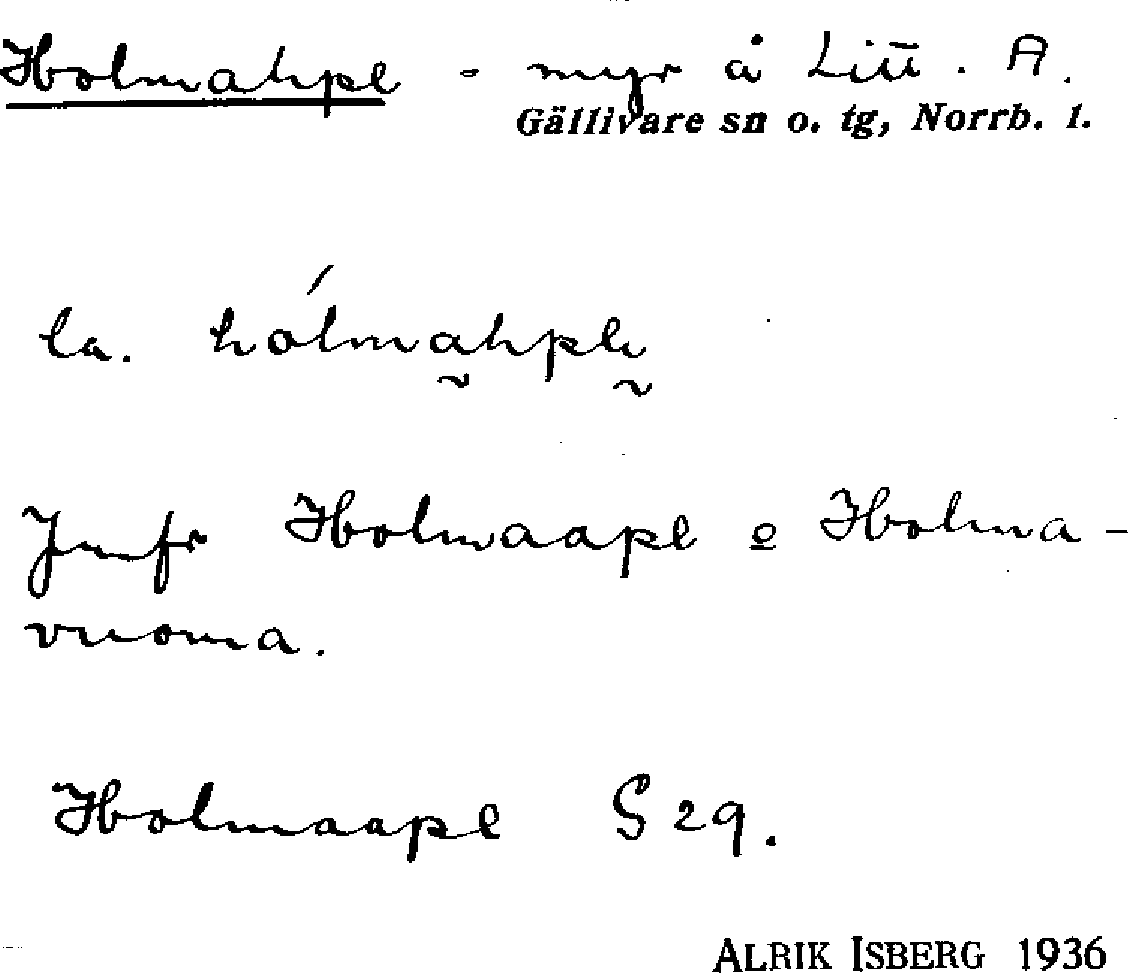 Holmahpe - myr å Litt. A.
Gällivare sn o. tg, Norrb. l.
la. hólmahpe
Jmfr Holmaape o Holma-
vuoma.
Holmaape S 29.
ALRIK ISBERG 1936